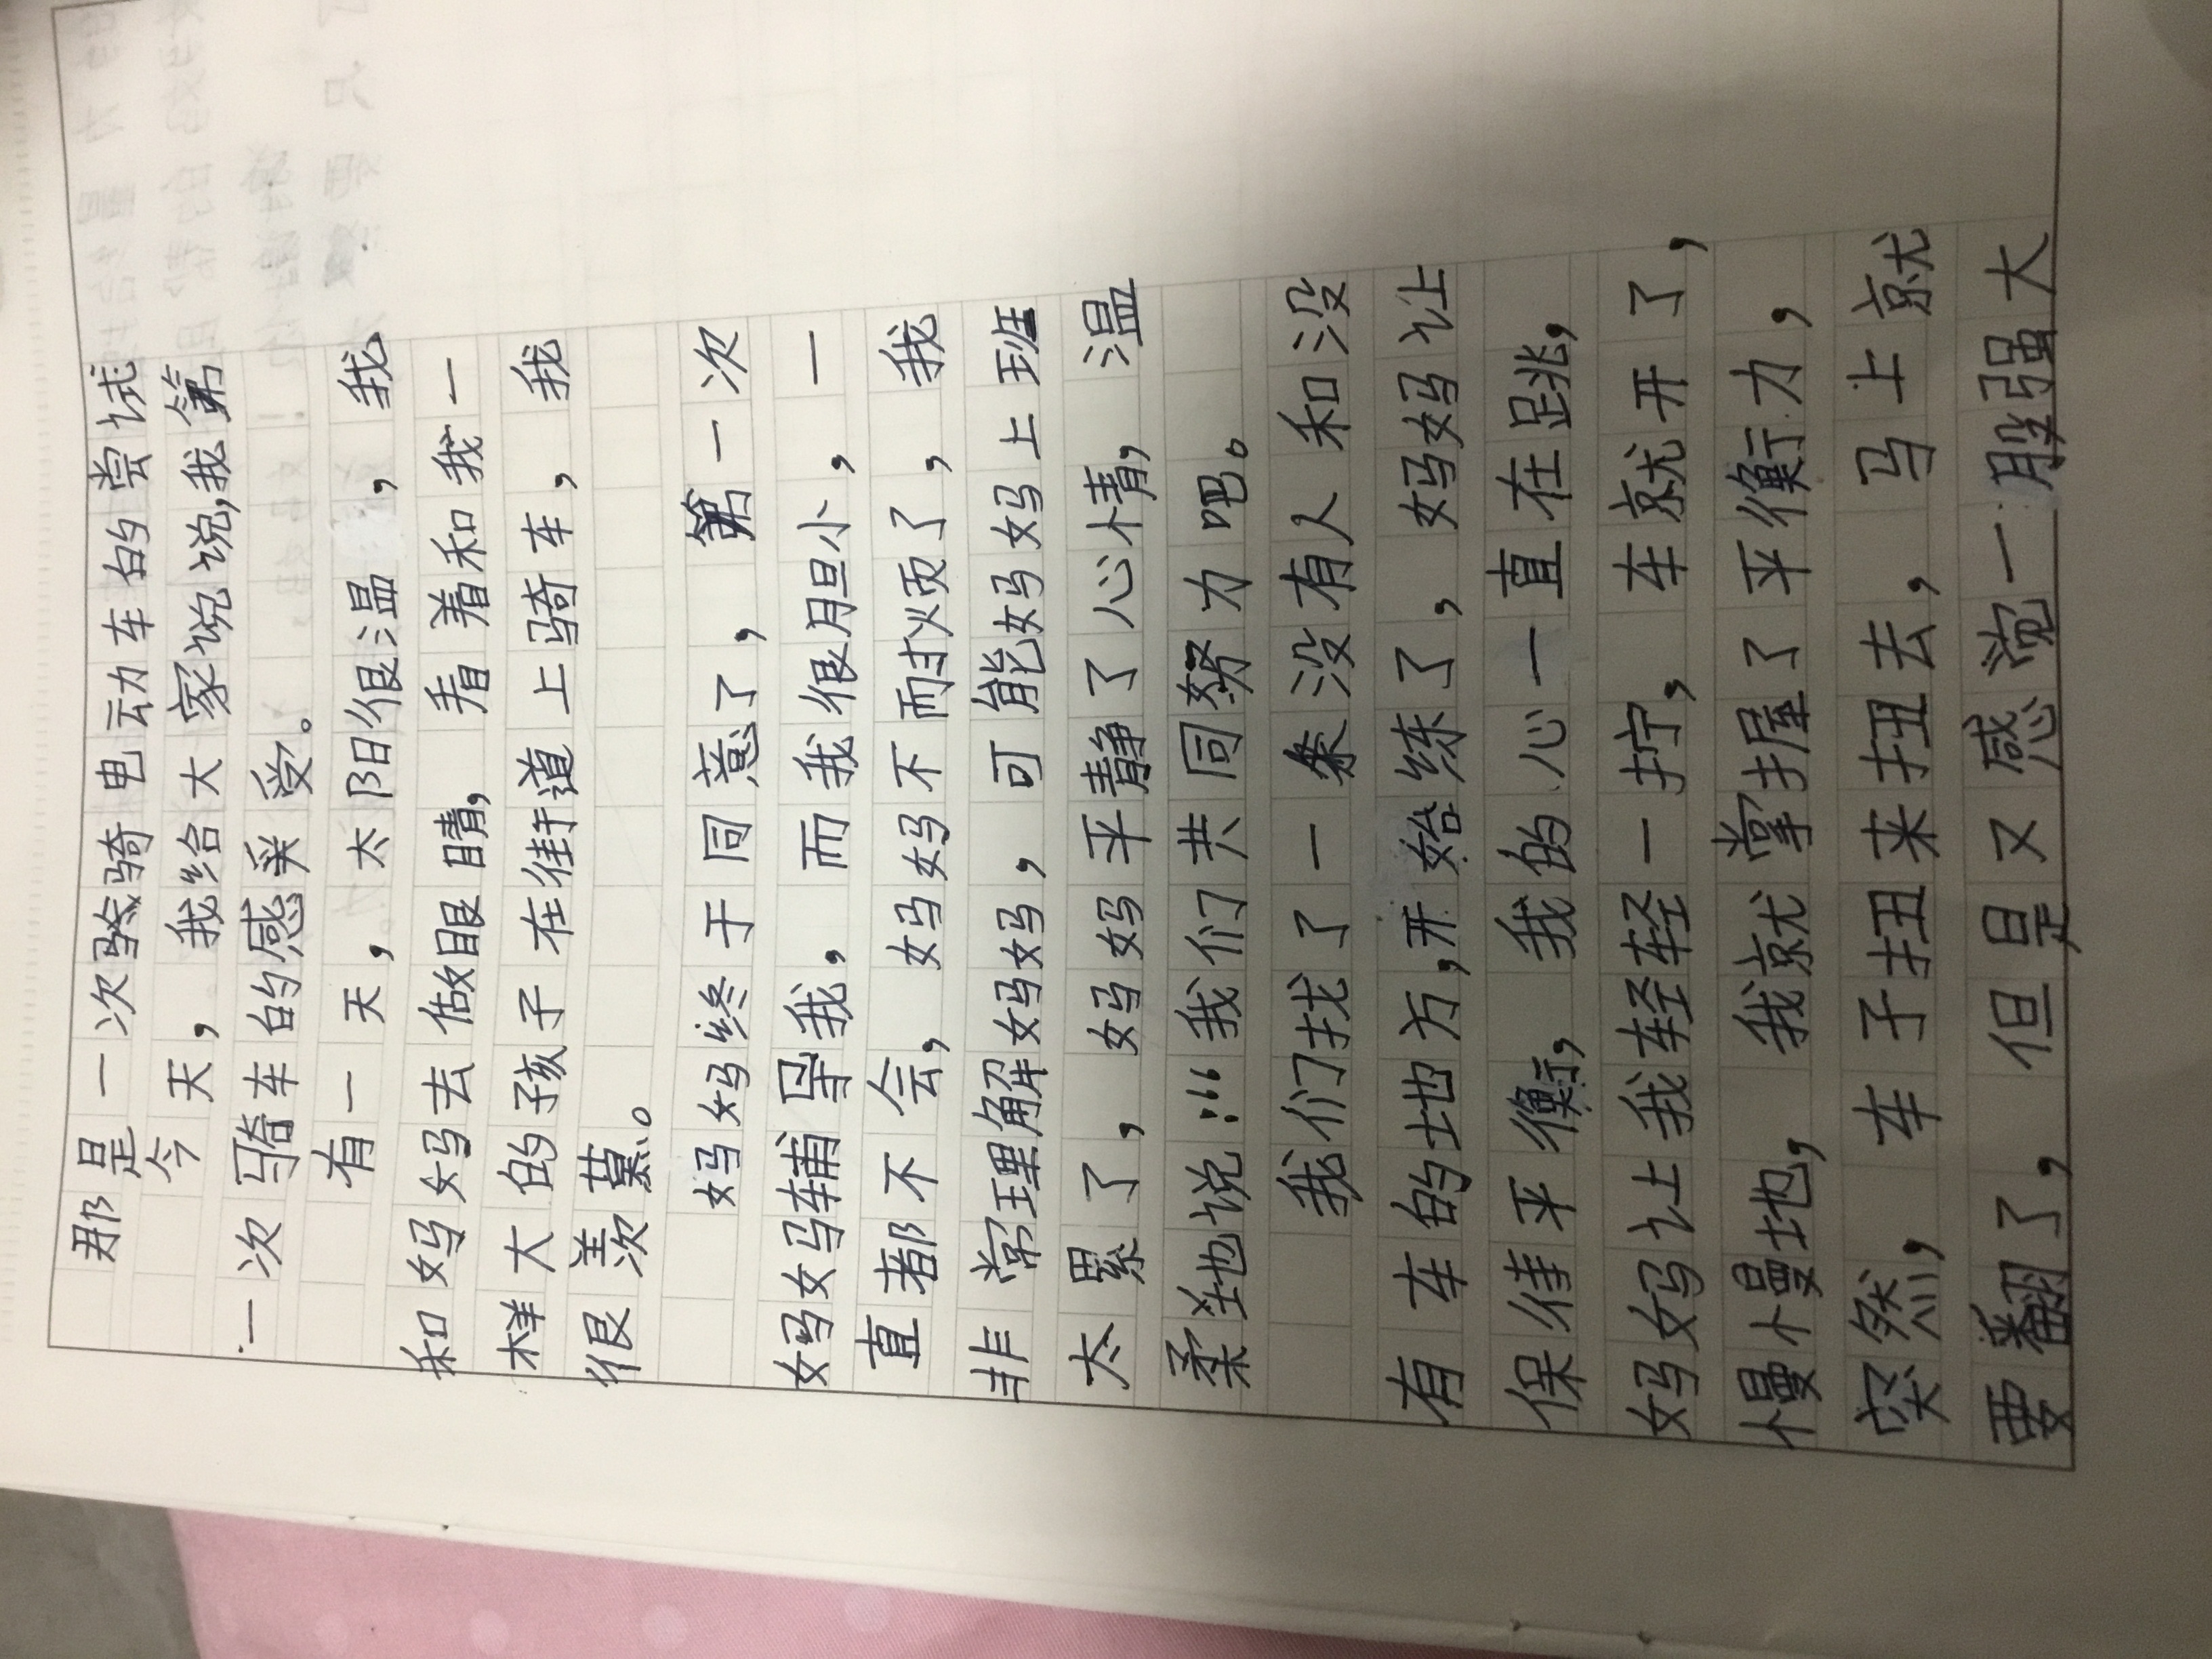 那是一次骑电动车的尝试
今天，我给大家说说，我第
一次骑车的感受。
有一天，太阳很温，我
和妈妈去做眼睛，看着和我一
样大的孩子在街道上骑车，我
很羡慕。
妈妈终于同意了，第一次
妈妈辅导我，而我很胆小，一
直都不会，妈妈不耐烦了，我
非常理解妈妈，可能妈妈上班
太累了，妈妈平静了心情，温
柔地说：“我们共同努力吧。
我们找了一条没有人和没
有车的地方，开始练了，妈妈让
保持平衡，我的心一直在跳，
妈妈让我轻轻一拧，车就开了，
慢慢地，我就掌握了平衡力，
突然，车子扭来扭去，马上就
要翻了，但是又感觉一股强大